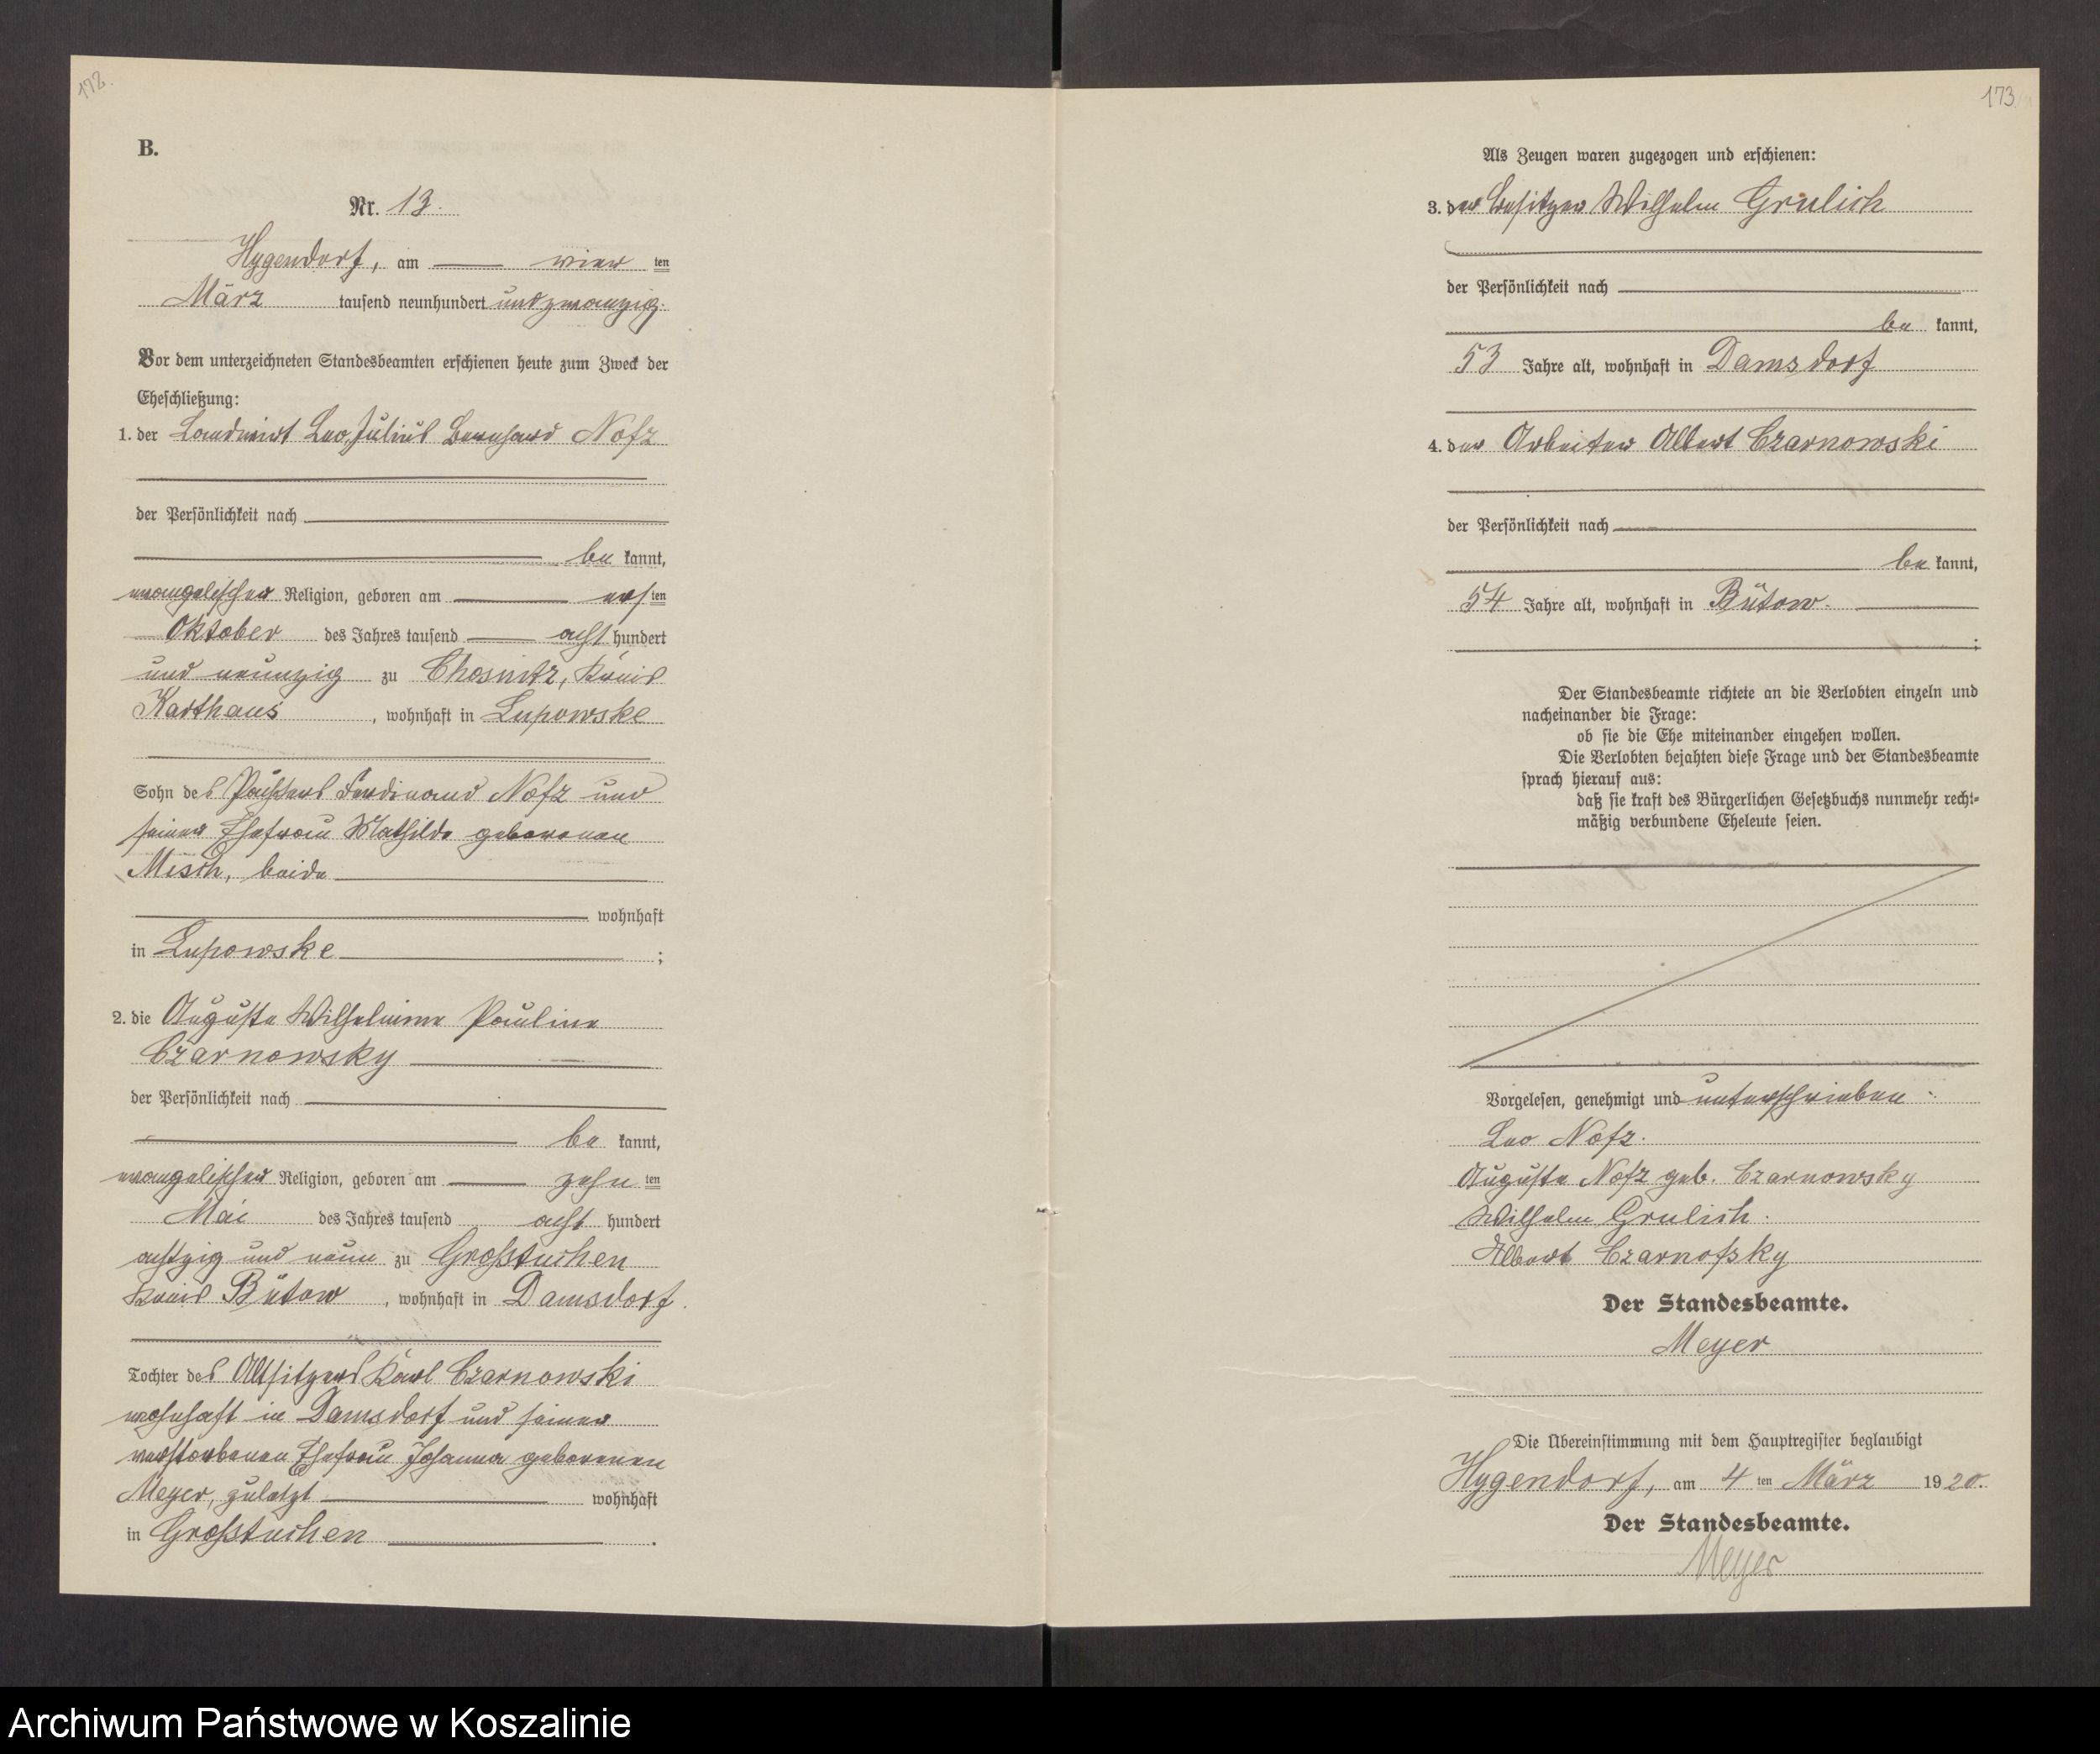 172.
B.
Nr. 13.
Hygendorf, am vier ten
März tausend neunhundert und zwanzig.
Vor dem unterzeichneten Standesbeamten erschienen heute zum Zweck der
Eheschließung:
1. der Landwirt Leo Julius Bernhard Nofz
der Persönlichkeit nach
be kannt,
evangelischer Religion, geboren am ers ten
Oktober des Jahres tausend acht hundert
und neunzig zu Chosnitz, Kreis
Karthaus, wohnhaft in Lupowske
Sohn des Pächters Ferdinand Nofz und
seiner Ehefrau Mathilde geborenen
Misch, beide
wohnhaft
in Lupowske ;
2. die Auguste Wilhelmine Pauline
Czarnowsky
der Persönlichkeit nach
be kannt,
evangelischer Religion, geboren am zehn ten
Mai des Jahres tausend acht hundert
achtzig und neun zu Großtuchen
Kreis Bütow, wohnhaft in Damsdorf.
Tochter des Altsitzers Karl Czarnowski
wohnhaft in Damsdorf und seiner
verstorbenen Ehefrau Johanna geborenen
Meyer, zuletzt wohnhaft
in Großtuchen .
173
Als Zeugen waren zugezogen und erschienen:
3. der Besitzer Wilhelm Grulich
der Persönlichkeit nach
be kannt,
53 Jahre alt, wohnhaft in Damsdorf
4. der Arbeiter Albert Czarnowski
der Persönlichkeit nach
be kannt,
54 Jahre alt, wohnhaft in Bütow.
;
Der Standesbeamte richtete an die Verlobten einzeln und
nacheinander die Frage:
ob sie die Ehe miteinander eingehen wollen.
Die Verlobten bejahten diese Frage und der Standesbeamte
sprach hierauf aus:
daß sie kraft des Bürgerlichen Gesetzbuchs nunmehr recht-
mäßig verbundene Eheleute seien.
Vorgelesen, genehmigt und unterschrieben:
Leo Nofz.
Auguste Nofz geb. Czarnowsky
Wilhelm Grulich.
Albert Czarnofzky
Der Standesbeamte.
Meyer
Die Übereinstimmung mit dem Hauptregister beglaubigt
Hygendorf, am 4 ten März 1920.
Der Standesbeamte.
Meyer
Archiwum Państwowe w Koszalinie